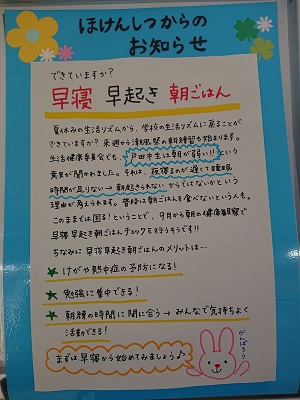 ほけんしつからの
お知らせ
できていますか?
早寝 早起き 朝ごはん
夏休みの生活リズムから、学校の生活リズムに戻ることが
できていますか? 来週から潮風祭の朝練習も始まります。
生活健康委員会でも、戸田中生は朝が弱い!!という
意見が聞かれました。それは、夜寝るのが遅くて睡眠
時間が足りない→朝起きられないからではないかという
理由が考えられます。普段は朝ごはんを食べないという人も。
このままでは困る!ということで、9月から朝の健康観察で
早寝早起き朝ごはんチェックを行うそうです!!
ちなみに早寝早起き朝ごはんのメリットは…
★ けがや熱中症の予防になる!
★ 勉強に集中できる!
★ 朝練の時間に間に合う→みんなで気持ちよく
活動できる!
まずは早寝から始めてみましょう♪
がんばろう